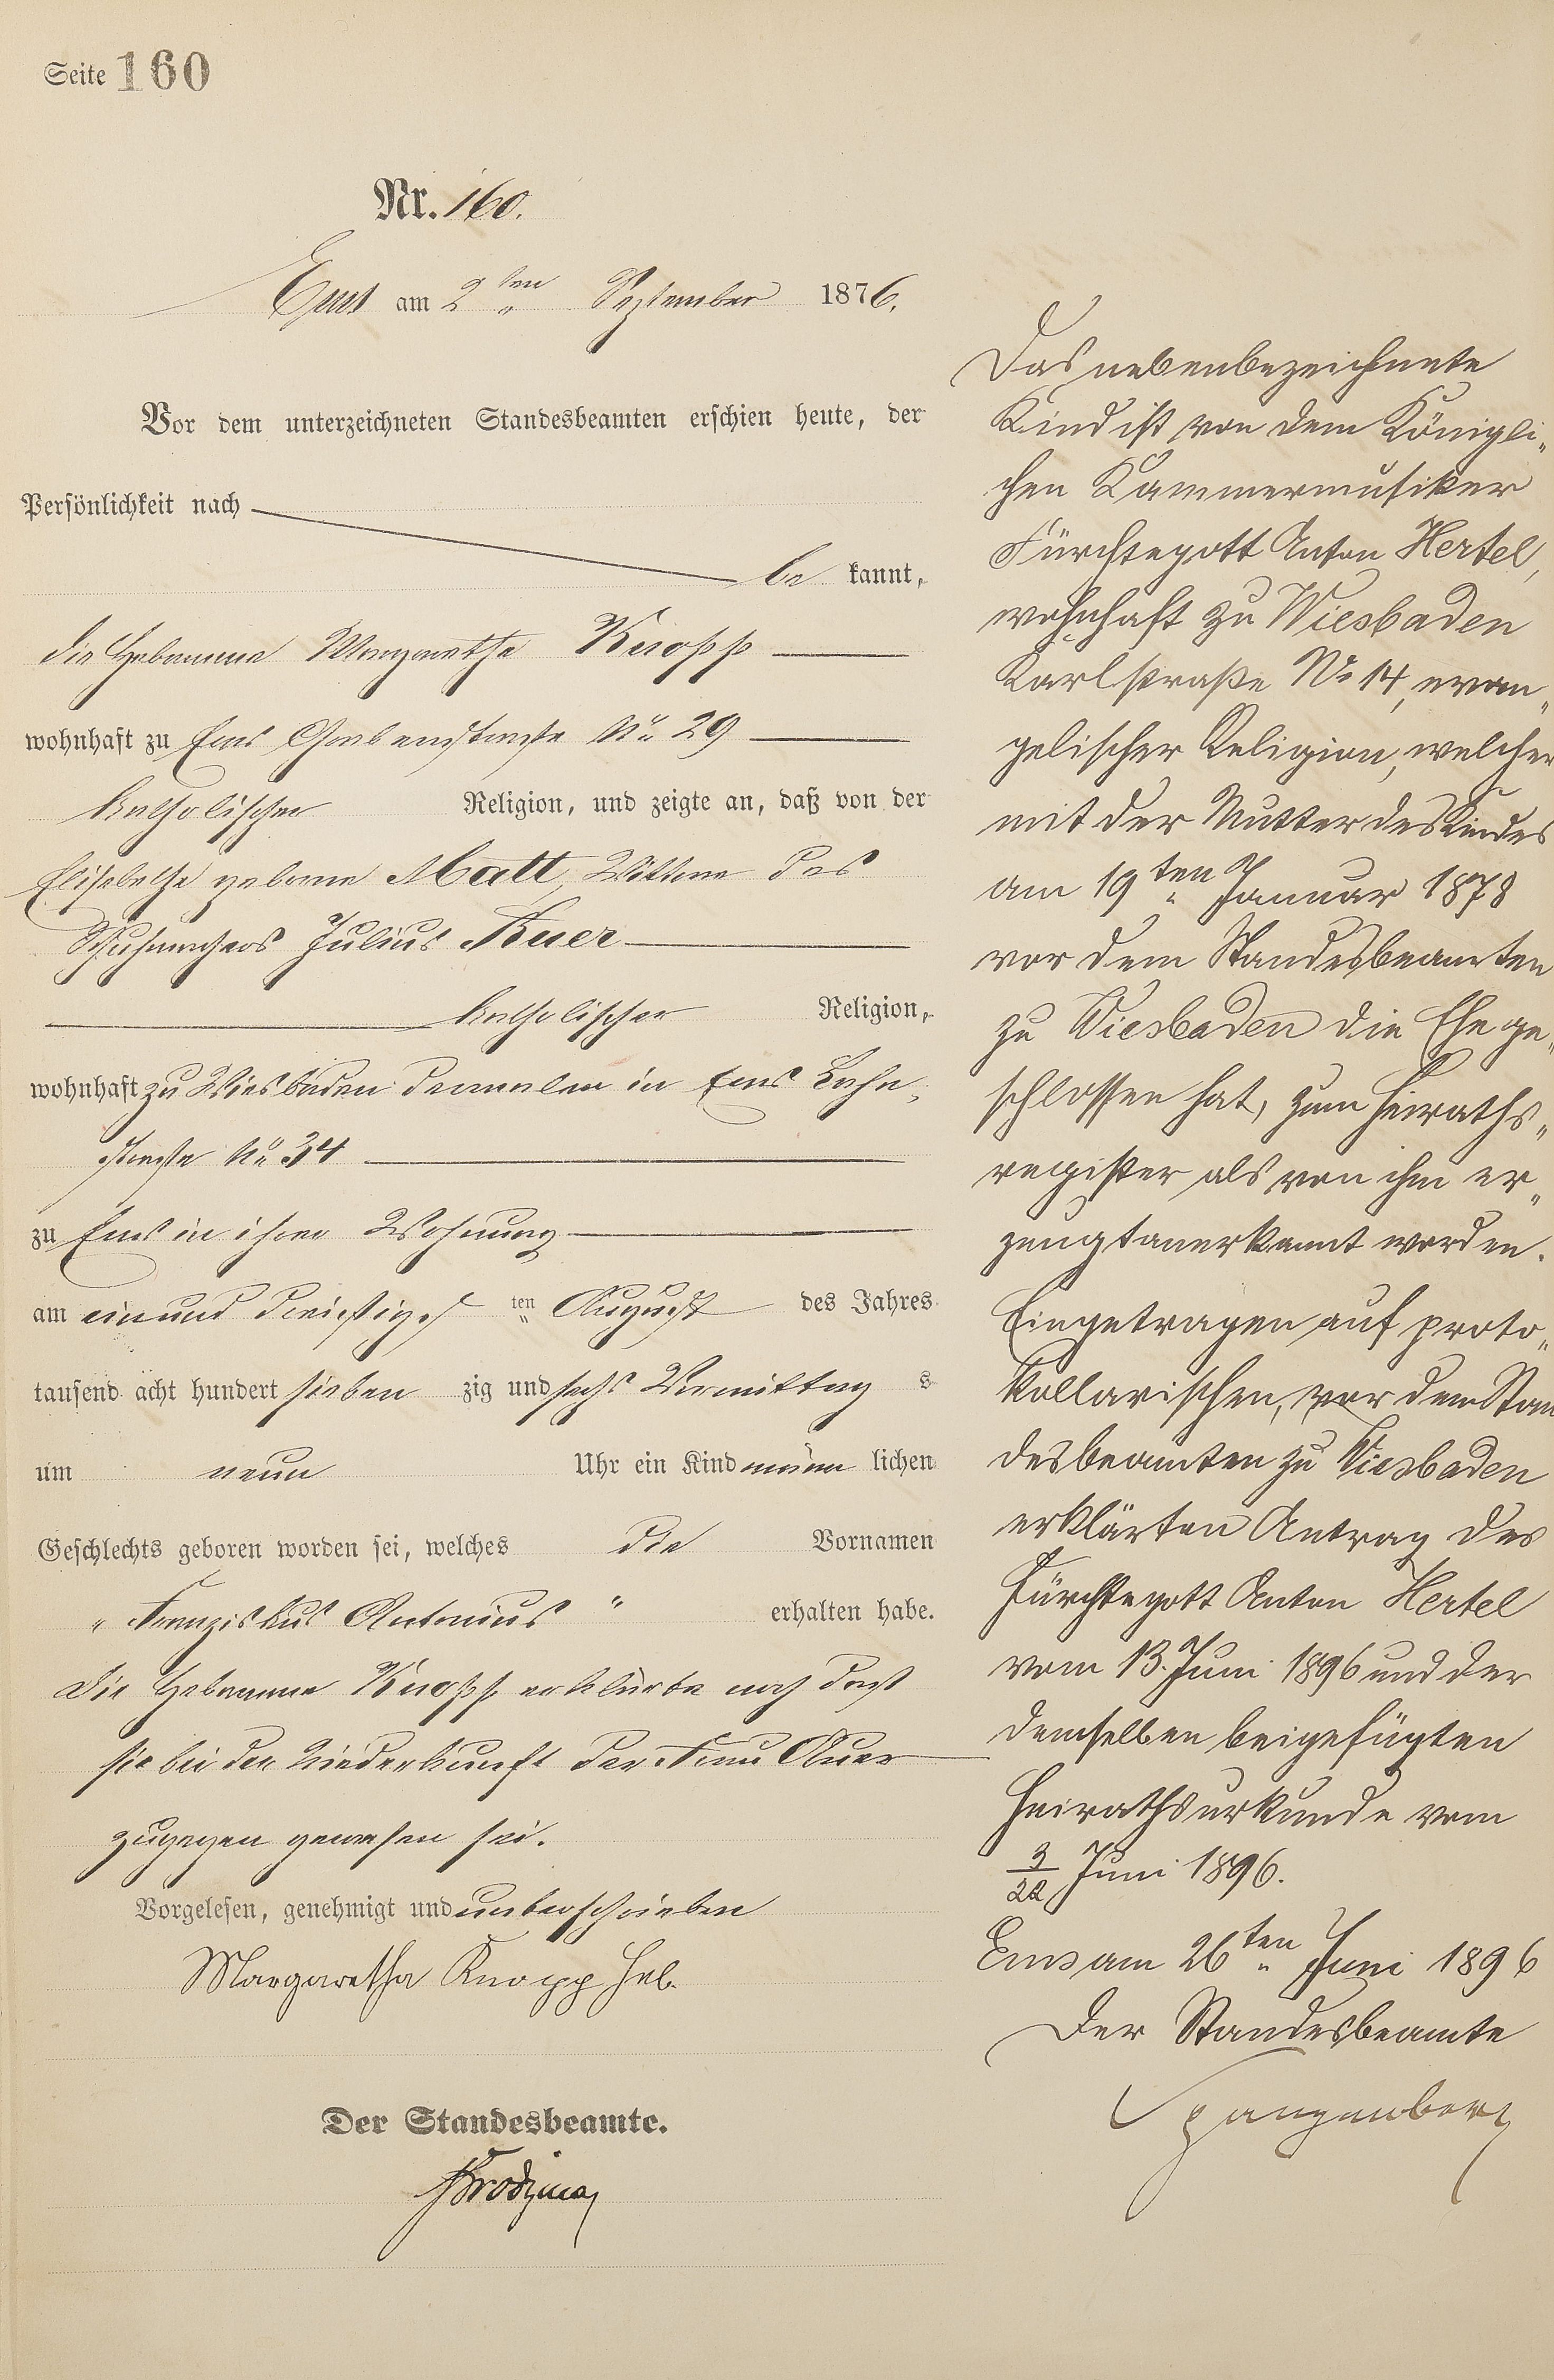 Seite 160
Nr. 160.
Ems am 2ten September 1876.
Vor dem unterzeichneten Standesbeamten erschien heute, der
Persönlichkeit nach
be kannt,
die Hebamme Margarethe Knopp
wohnhaft zu Ems Grabenstraße No 29
katholischer Religion, und zeigte an, daß von der
Elisabethe geborne Matt, Wittwe des
Schuhmachers Julius Auer
katholischer Religion,
wohnhaft zu Wiesbaden dermalen in Ems Lahn-
straße No 34
zu Ems in ihrer Wohnung
am einund dreißigst ten August des Jahres
tausend acht hundert sieben zig und sechs Vormittag s
um neun Uhr ein Kind männ lichen
Geschlechts geboren worden sei, welches die Vornamen
"Franziskus Antonius" erhalten habe.
Die Hebamme Knopp erklärte noch daß
sie bei der Niederkunft der Frau Auer
zugegen gewesen sei.
Vorgelesen, genehmigt und unterschrieben
Margaretha Knopp Heb.
Der Standesbeamte.
Das nebenbezeichnete
Kind ist von dem Königli„
chen Kammermusiker
Fürchtegott Anton Hertel,
wohnhaft zu Wiesbaden
Karlstraße No 14, evan„
gelischer Religion, welcher
mit der Mutter des Kindes
am 19ten Januar 1878
vor dem Standesbeamten
zu Wiesbaden die Ehe ge„
schlossen hat, zum Heiraths„
register als von ihm er„
zeugt anerkannt worden.
Eingetragen auf proto„
kollarischen, vor dem Stan
desbeamten zu Wiesbaden
erklärten Antrag des
Fürchtegott Anton Hertel
vom 13. Juni 1896 und der
demselben beigefügten
Heirathsurkunde vom
3/22 Juni 1896.
Ems am 26ten Juni 1896
Der Standesbeamte
Spangenberg